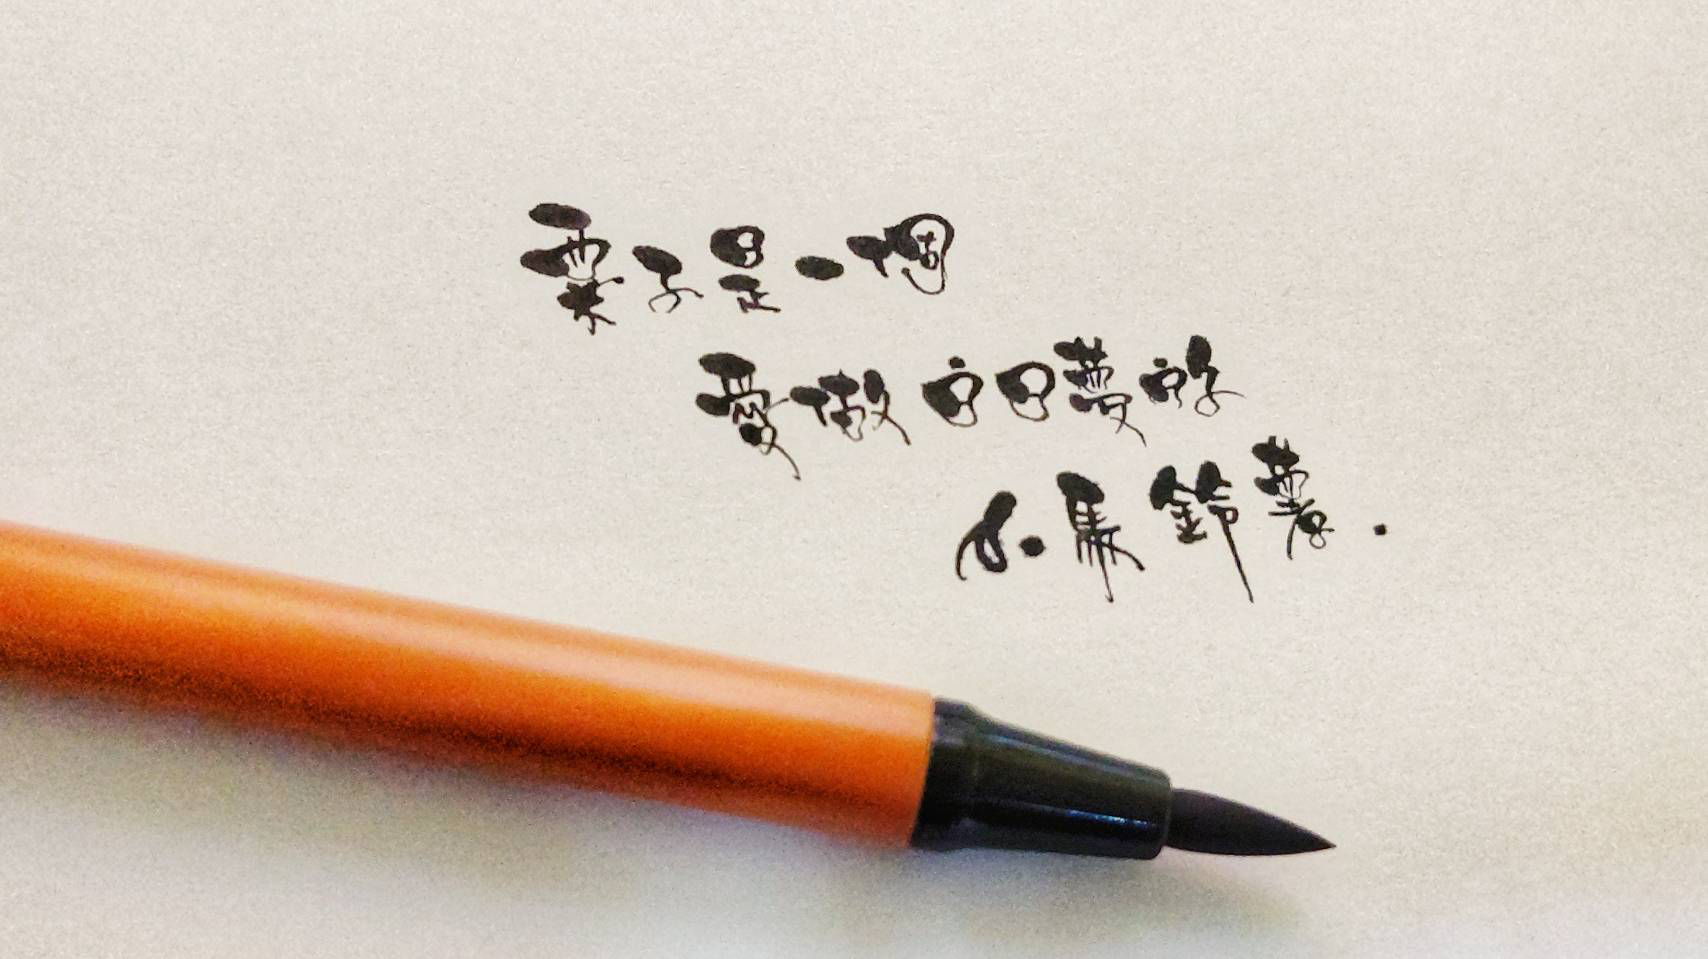 栗子是一個
愛做白日夢的
小馬鈴薯.